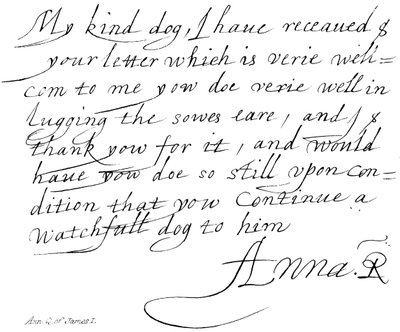 My kind dog, I haue receaued &
your letter which is verie well=
com to me yow doe verie well in
lugging the sowes eare, and I &
thank yow for it, and would
haue yow doe so still vpon con=
dition that yow continue a
watchfull dog to him
Anna. R
Ann Q. of James I.